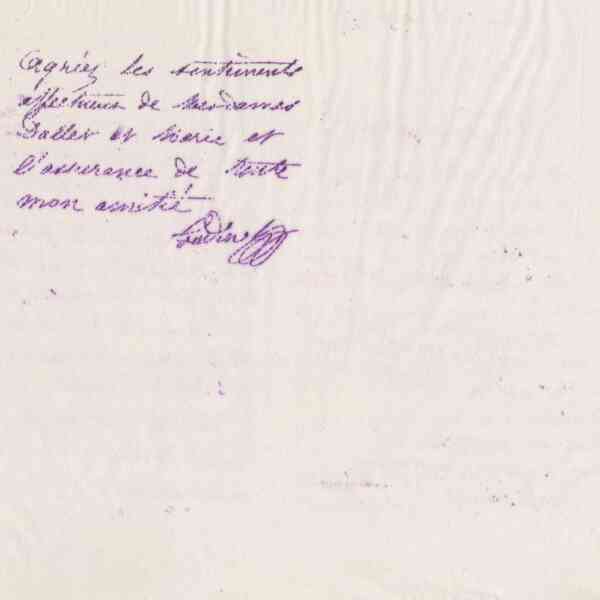 Agréez les sentiments
affectueux de Mesdames
Dallet et Marie et
l'assurance de toute
mon amitié
Godin